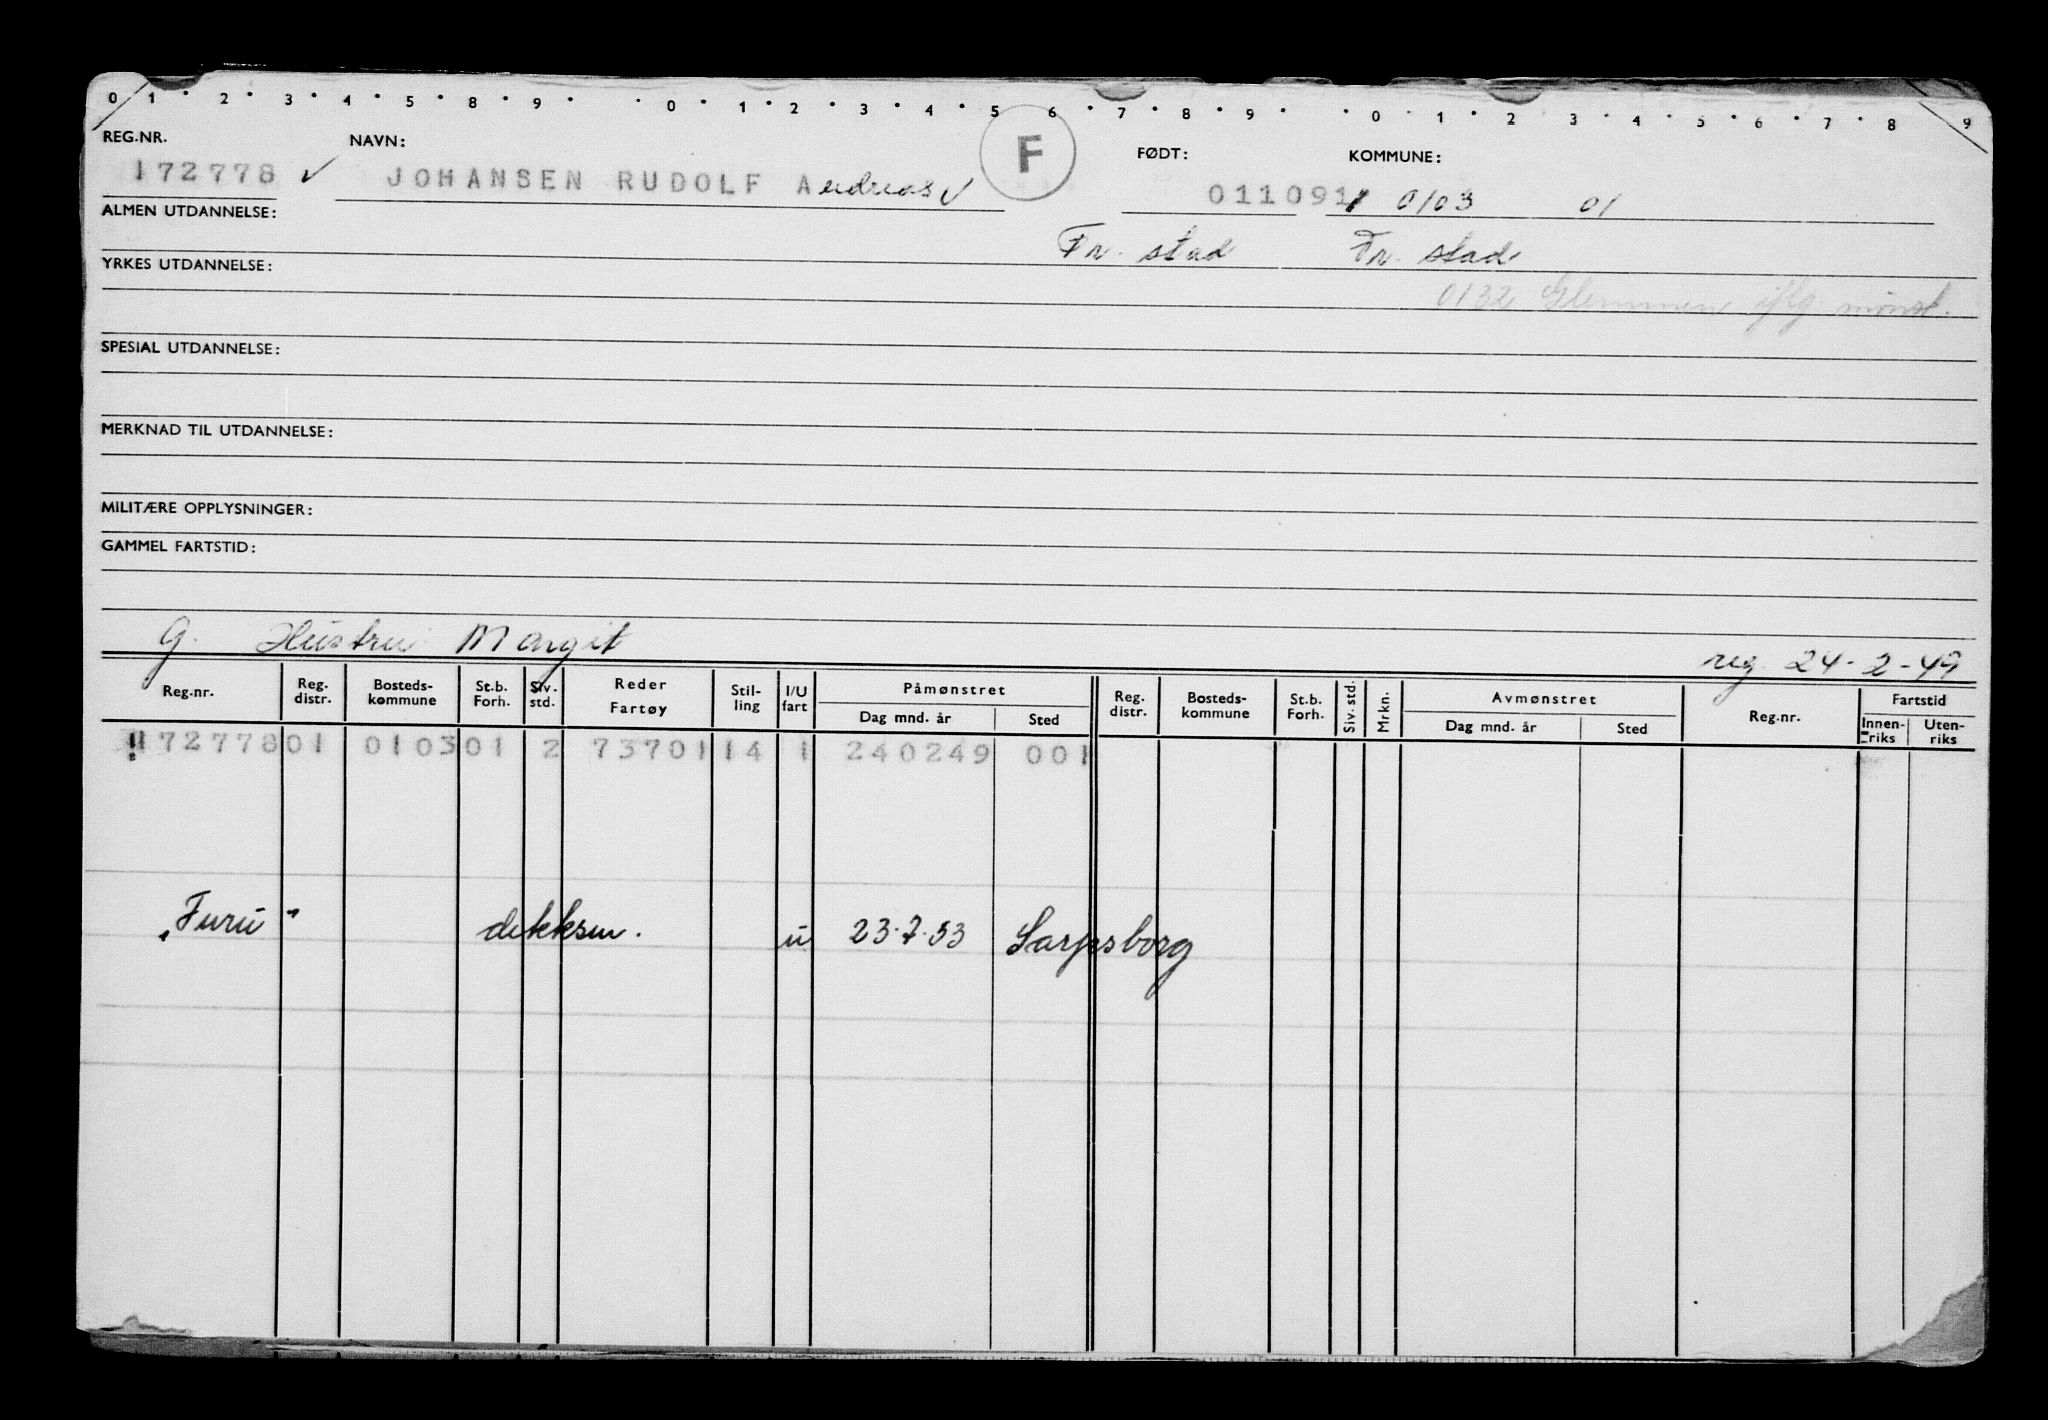 0 1 · 2 · 3 · 4 · 5 · 8 · 9 · · 0 · 1 · 2 · 3 · 4 · 5 6 · 7 · 8 · 9 · · 0 · 1 · 2 3 · 4 · 5 · 6 · 7 · 8 9
REG.NR. NAVN: F FØDT: KOMMUNE:
172778 ✓ JOHANSEN RUDOLF Andreas ✓ 011091 0103 01
ALMEN UTDANNELSE:
Fr. stad Fr. stad
YRKES UTDANNELSE:
0132 Glemmen iflg. mønst.
SPESIAL UTDANNELSE:
MERKNAD TIL UTDANNELSE:
MILITÆRE OPPLYSNINGER:
GAMMEL FARTSTID:
G. Hustru Margit reg. 24-2-49
Reg.nr. Reg. distr. Bosteds- kommune St.b. Forh. Siv. std. Reder Fartøy Stil- ling I/U fart Påmønstret Dag mnd. år Sted Reg. distr. Bosteds- kommune St.b. Forh. Siv. std. Mrkn. Avmønstret Dag mnd. år Sted Reg.nr. Fartstid Innen- riks Uten- riks
172778 01 0103 01 2 73701 14 1 240249 001
"Furu" dekksm. u 23.7.53 Sarpsborg